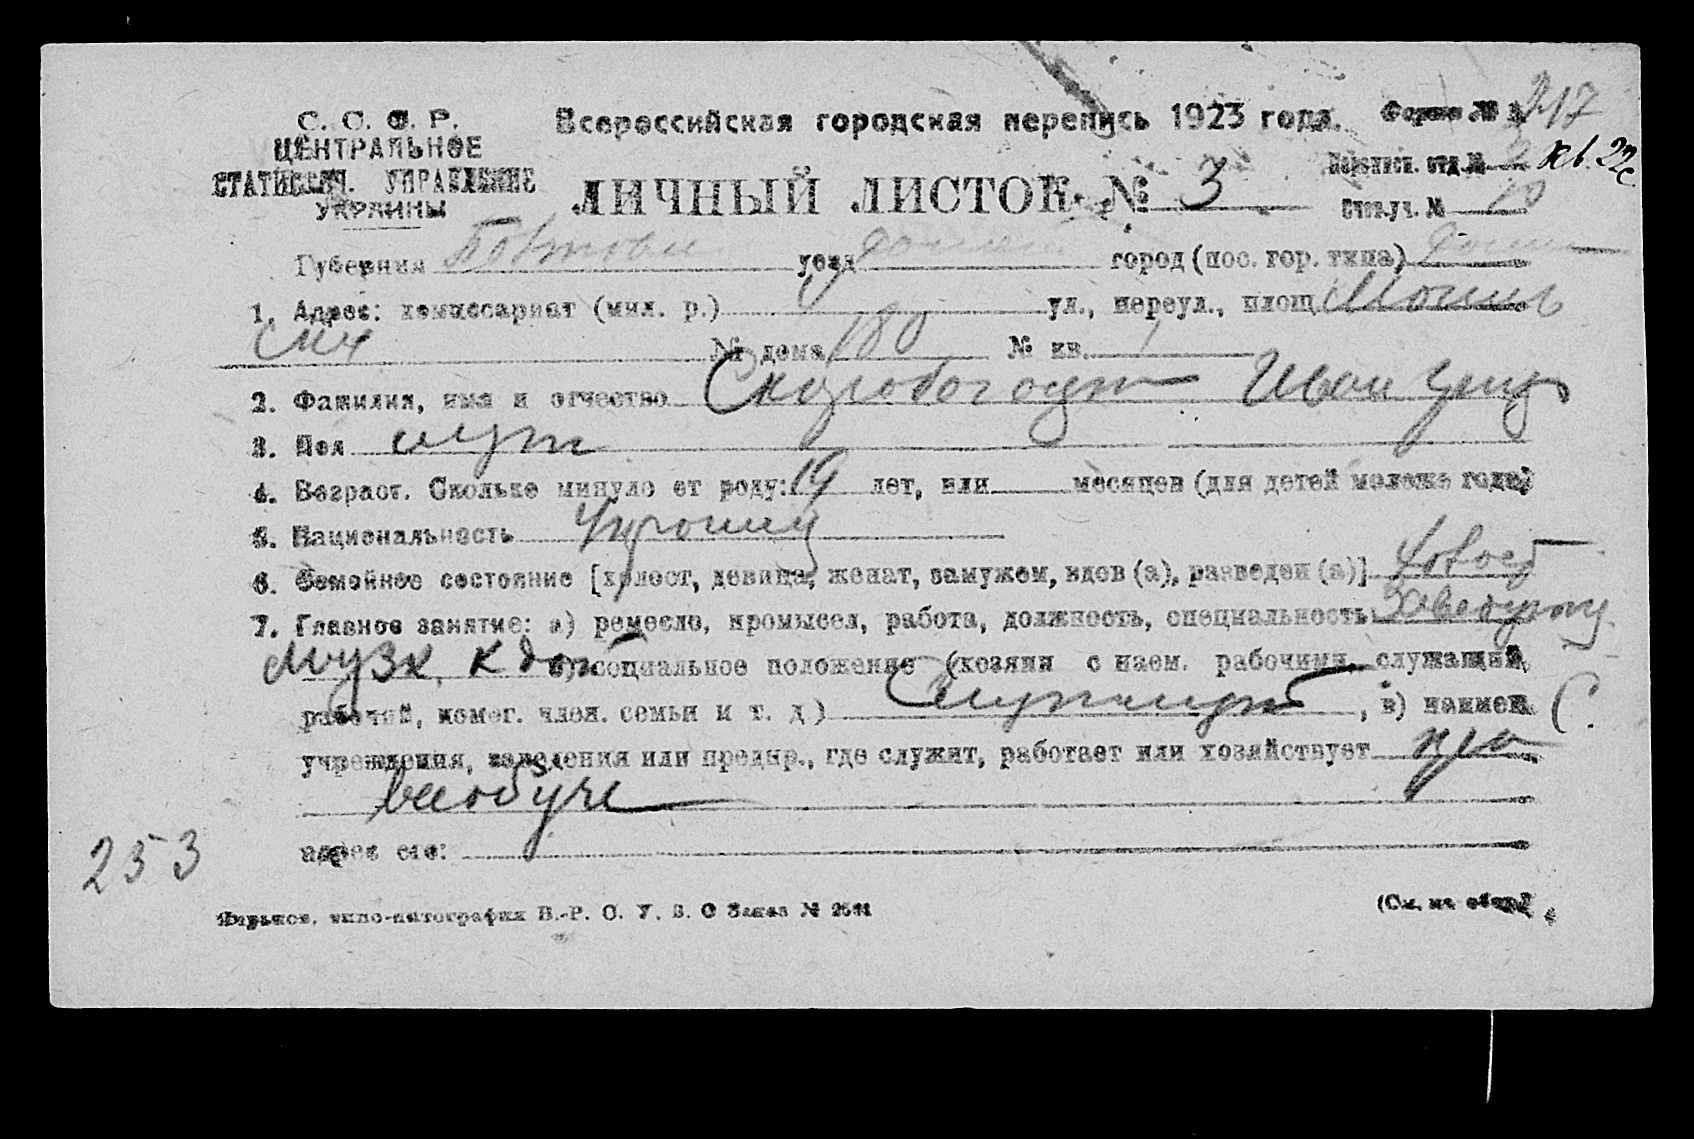 С. С. С. Р.
ЦЕНТРАЛЬНОЕ
СТАТИСТИЧ. УПРАВЛЕНИЕ
УКРАИНЫ
Всероссийская городская перепись 1923 года.
ЛИЧНЫЙ ЛИСТОК № 3
Форма № 217
Переписн. отд. № 2 кв. 22
Счет.уч. № 10
Губерния Полтовск уезд город (пос. гор. типа)
1. Адрес: комиссариат (мил. р.) ул., переул., площ
№ дома 180 № кв. 1
2. Фамилия, имя и отчество Скоробогат Иван Григ
3. Пол муж
4. Возраст. Сколько минуло от роду: 19 лет, или месяцев (для детей моложе года)
5. Национальность Украинец
6. Семейное состояние [холост, девица, женат, замужем, вдов (а), разведен (а)] холост
7. Главное занятие: а) ремесло, промысел, работа, должность, специальность Заведующ
муз. к б) социальное положение (хозяин с наем. рабочими, служащий,
рабочий, помог. член. семьи и т. д) Служащий, в) наимен. С.
учреждения, заведения или предпр., где служит, работает или хозяйствует
всеобуч
адрес его:
253
Харьков, типо-литография В.-Р. О. У. В. О Заказ №
(См. на обор.)